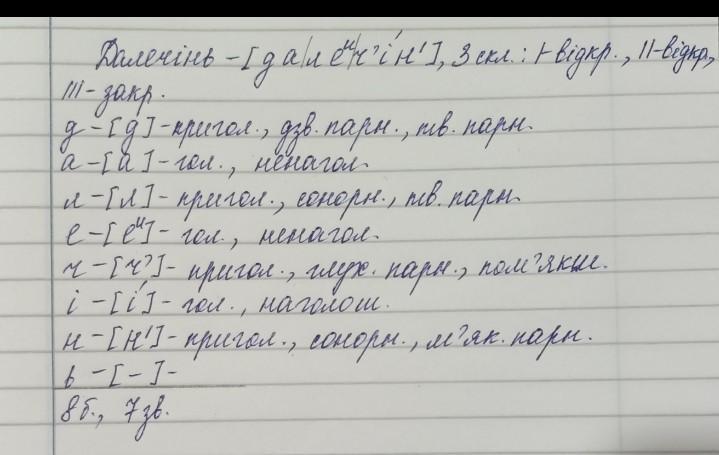 Далечінь - [да|леᶸ|ч’і́н′], 3 скл.: І-відкр., ІІ-відкр.,
ІІІ- закр.
д - [д] - пригол., дзв. парн., тв. парн.
а - [а] - гол., ненагол.
л - [л] - пригол., сонорн., тв. парн.
е - [еᶸ] - гол., ненагол.
ч - [ч’] - пригол., глух. парн., пом’якш.
і - [і́] - гол., наголош.
н - [н′] - пригол., сонорн., м’як. парн.
ь - [-] -
8 б., 7 зв.